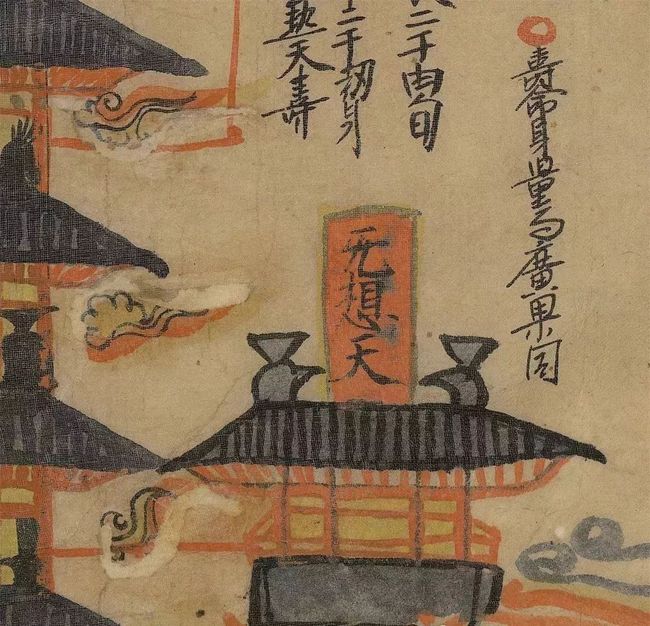 壽命身量与廣果同
二千由旬
二千劫身
熱天壽
无想天